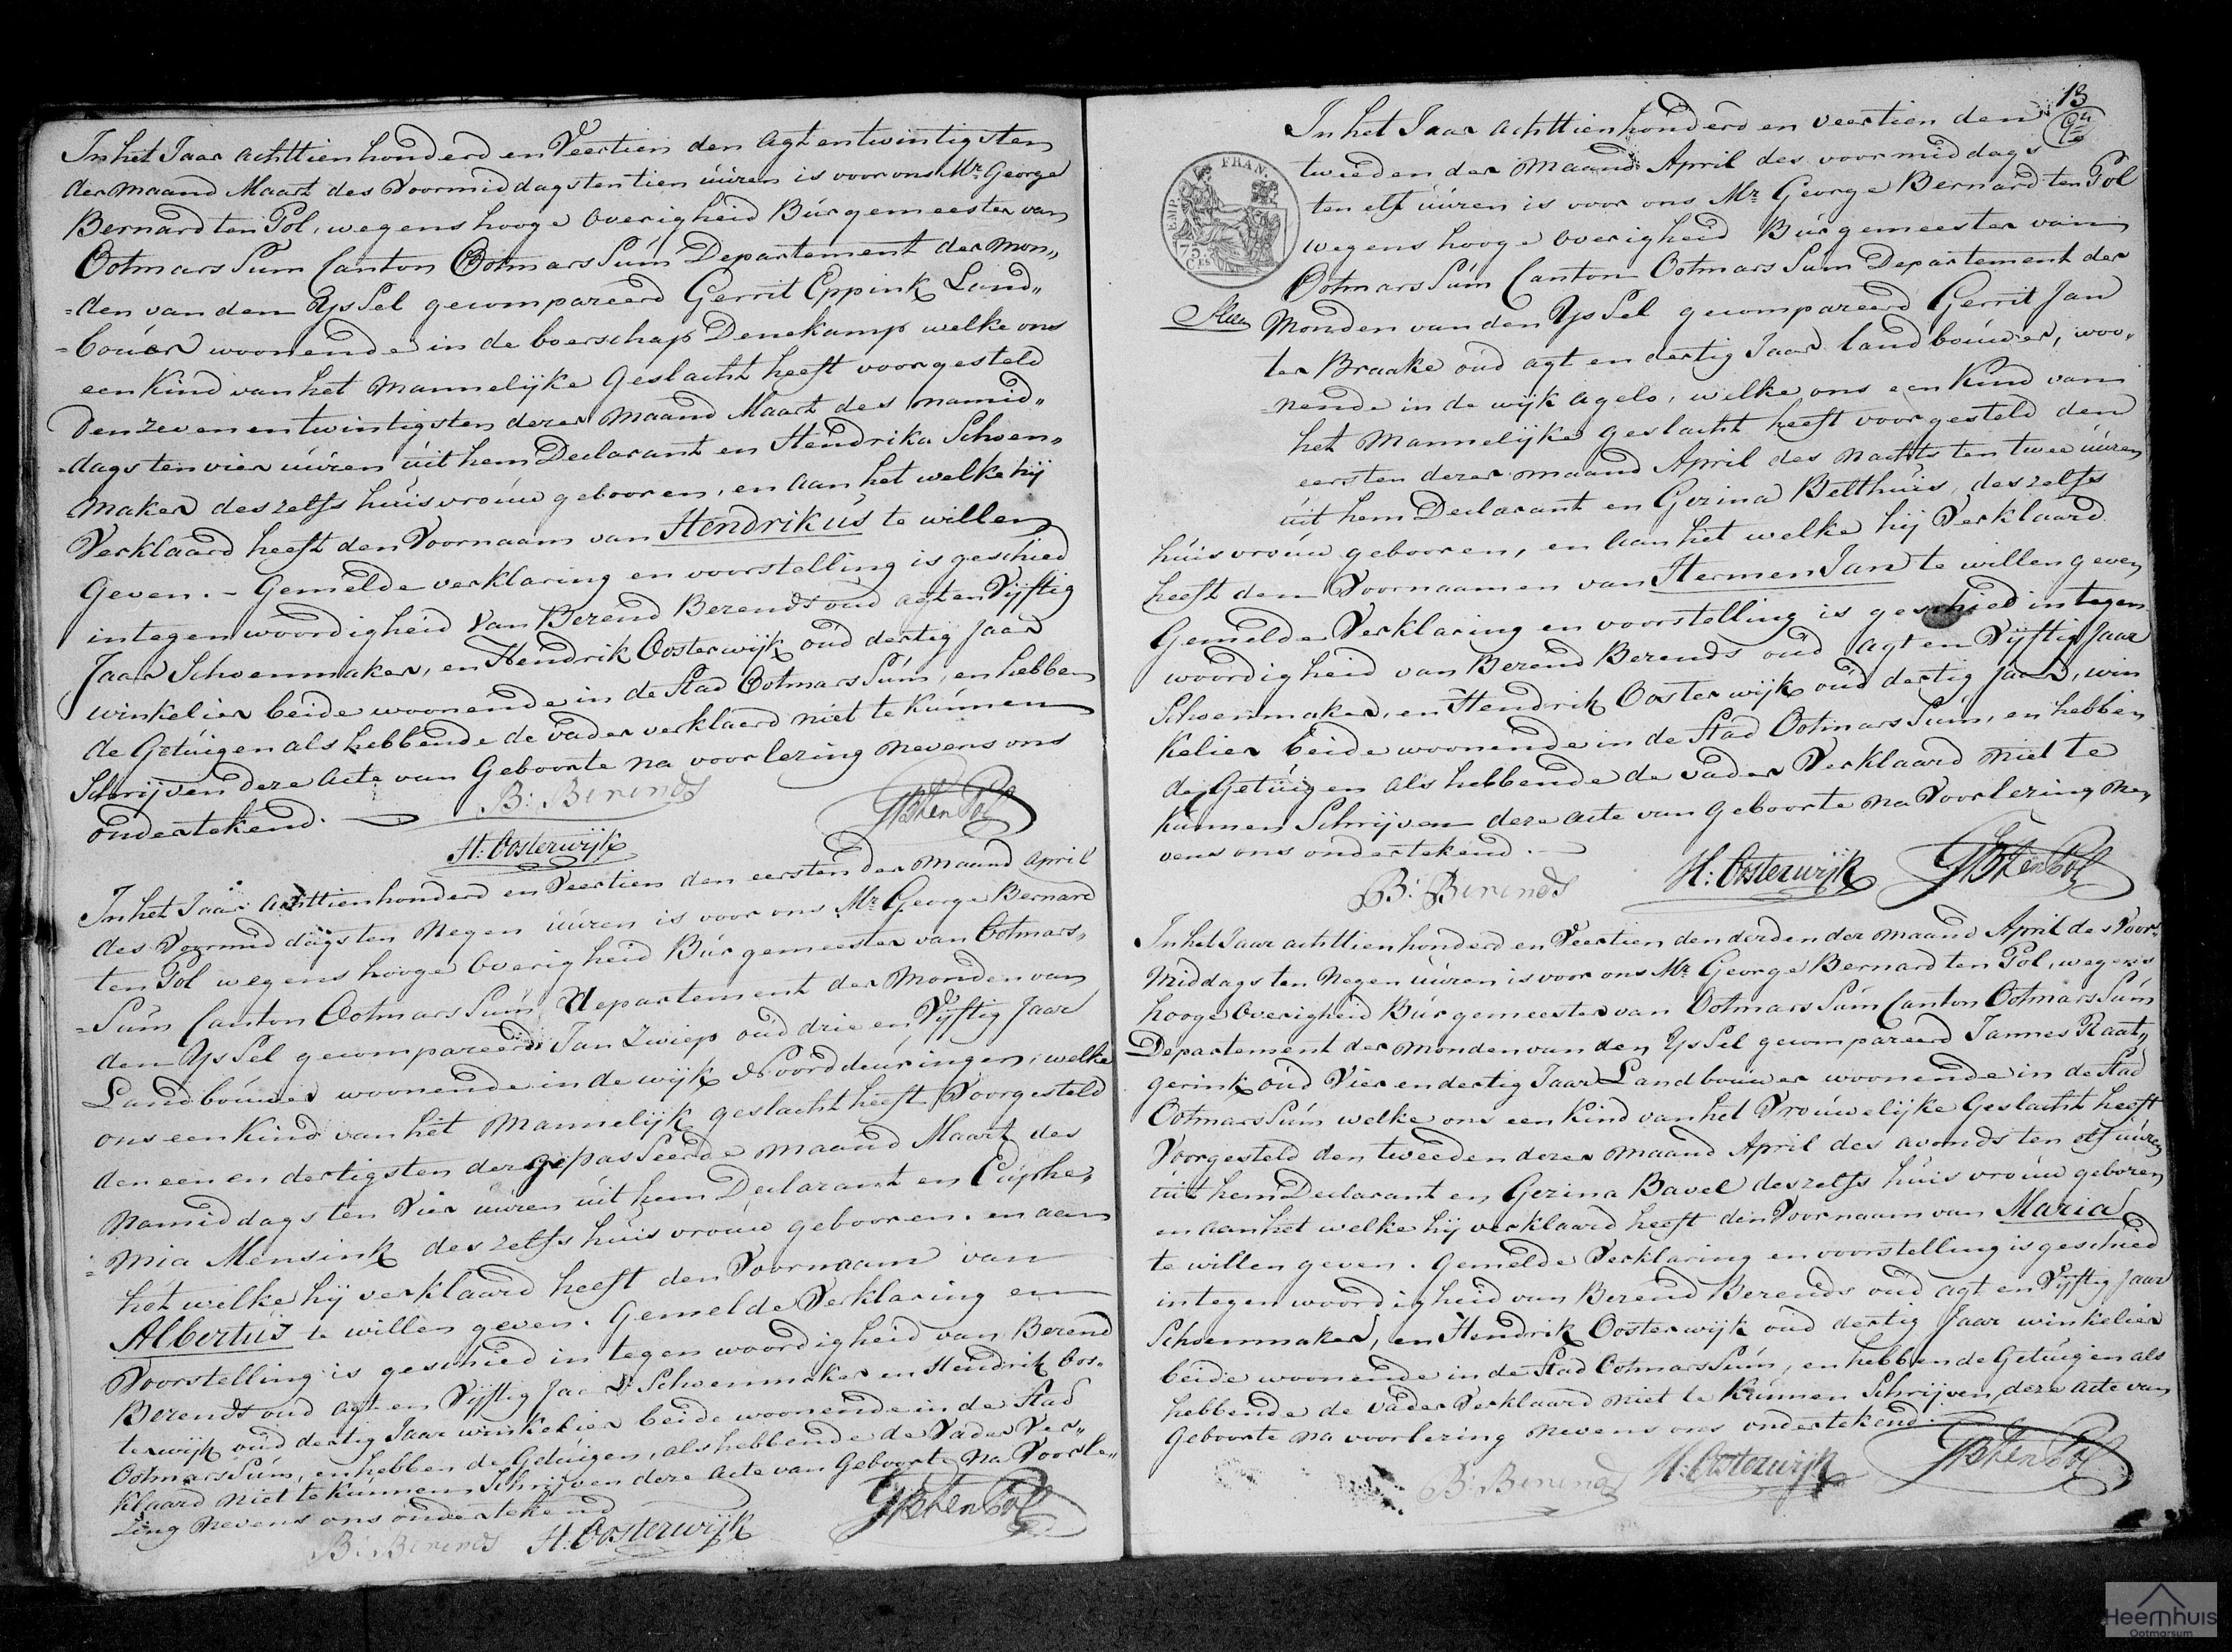 In het Jaar achttienhonderd en Veertien den agt entwintigsten
der maand Maart des Voormiddags ten tien uúren is voor ons Mr. George
Bernard ten Pol, wegens hooge Overigheid Búrgemeester van
OotmarsSum Canton OotmarsSúm Departement der Mon„
=den van den YsSel gecompareerd Gerrit Eppink Land„
=bouer woonende in de boerschap Denekamp welke ons
een Kind van het Mannelijke Geslacht heeft voorgesteld
den zeven en twintigsten dezer Maand Maart des namid„
=dags ten vier uúren úit hem Declarant en Hendrika Schoen„
maker deszelfs húisvroúw gebooren, en aan het welke hij
Verklaard heeft den Voornaam van Hendrikús te willen
Geven. – Gemelde verklaring en voorstelling is geschied
in tegenwoordigheid van Berend Berends oud agt en Vijftig
Jaar Schoenmaker, en Hendrik Oosterwijk oúd dertig Jaar
winkelier beide woonende in de Stad OotmarsSúm, en hebben
de Getúigen als hebbende de vader verklaerd niet te kúnnen
Schrijven deze acte van Geboorte na voorlezing nevens ons
ondertekend.
B: Berends
GB ten Pol
H: Oosterwijk
In het Jaar achttienhonderd en Veertien den eersten der maand April
des Voormiddags ten Negen uúren is voor ons Mr. George Bernard
ten Pol wegens hooge Overigheid Búrgemeester van Ootmars„
=Súm Canton OotmarsSúm Departement der Monden van
den YsSel gecompareerd Jan Zwiep oúd drie en Vijftig Jaar
Landboúwer woonende in de wijk Noorddeúringen, welke
ons een Kind van het Mannelijk geslacht heeft Voorgesteld
den een en dertigsten der gepasSeerde maand Maart des
namiddags ten Vier uúren úit hem Declarant en Eúphe„
=mia Mensink deszelfs húisvroúw gebooren. en aan
het welke hij verklaard heeft den Voornaam van
Albertús te willen geven. Gemelde Verklaring en
Voorstelling is geschied in tegenwoordigheid van Berend
Berends oud agt en Vijftig Jaar Schoenmaker en Hendrik Oos„
terwijk oúd dertig Jaar winkelier beide woonende in de Stad
OotmarsSúm, en hebben de Getúigen, als hebbende de Vader Ver„
klaard niet te kúnnen Schrijven deze acte van Geboorte na Voorle„
zing nevens ons ondertekend
B: Berends H: Oosterwijk GB ten Pol
13
EMP. FRAN.
75
CES
In het Jaar achttienhonderd en veertien den
tweeden der maand April des voormiddags
ten elf uúren is voor ons Mr. George Bernard ten Pol
wegens hooge Overigheid Búrgemeester van
OotmarsSúm Canton OotmarsSúm Departement der
Monden van den YsSel gecompareerd Gerrit Jan
ter Braake oúd agt en dertig Jaar landboúwer, woo„
=nende in de wijk Agelo, welke ons een Kind van
het Mannelijke geslacht heeft voorgesteld den
eersten dezer maand April des Nachts ten twee uúren
úit hem Declarant en Gezina Belthúis, deszelfs
húisvroúw gebooren, en aan het welke hij Verklaard
heeft den Voornaamen van Hermen Jan te willen geven
Gemelde Verklaring en voorstelling is geschied in tegen
woordigheid van Berend Berends oúd agt en Vijftig Jaar
Schoenmaker, en Hendrik Oosterwijk oúd dertig Jaar, win
kelier beide woonende in de Stad OotmarsSúm, en hebben
de Getúigen als hebbende de vader Verklaard niet te
kúnnen Schrijven deze acte van geboorte na Voorlezing ne„
vens ons ondertekend.
B: Berends H: Oosterwijk GB ten Pol
In het Jaar achttienhonderd en Veertien den derden der maand April des Voor„
middags ten Negen uúren is voor ons Mr. George Bernard ten Pol, wegens
hooge Overigheid Búrgemeester van OotmarsSúm Canton OotmarsSúm
Departement der Monden van den YsSel gecompareerd Jannes Raat„
gerink oúd Vier en dertig Jaar Landboúwer woonende in de Stad
OotmarsSúm welke ons een Kind van het Vroúwelijke Geslacht heeft
Voorgesteld den tweeden dezer maand April des avonds ten elf uúren
úit hem Declarant en Gezina Bavel deszelfs húisvroúw geboren
en aan het welke hij verklaard heeft den Voornaam van Maria
te willen geven. Gemelde Verklaring en voorstelling is geschied
in tegenwoordigheid van Berend Berends oud agt en Vijftig Jaar
Schoenmaker, en Hendrik Oosterwijk oúd dertig Jaar winkelier
beide woonende in de Stad OotmarsSúm, en hebben de Getúigen als
hebbende de Vader Verklaard niet te Kúnnen Schrijven, deze acte van
Geboorte na voorlezing nevens ons ondertekend.
B: Berends H: Oosterwijk GB ten Pol
Heemhuis
Ootmarsum